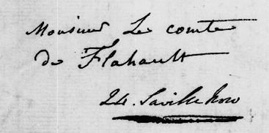 Monsieur Le comte
de Flahault
24. Saville Row